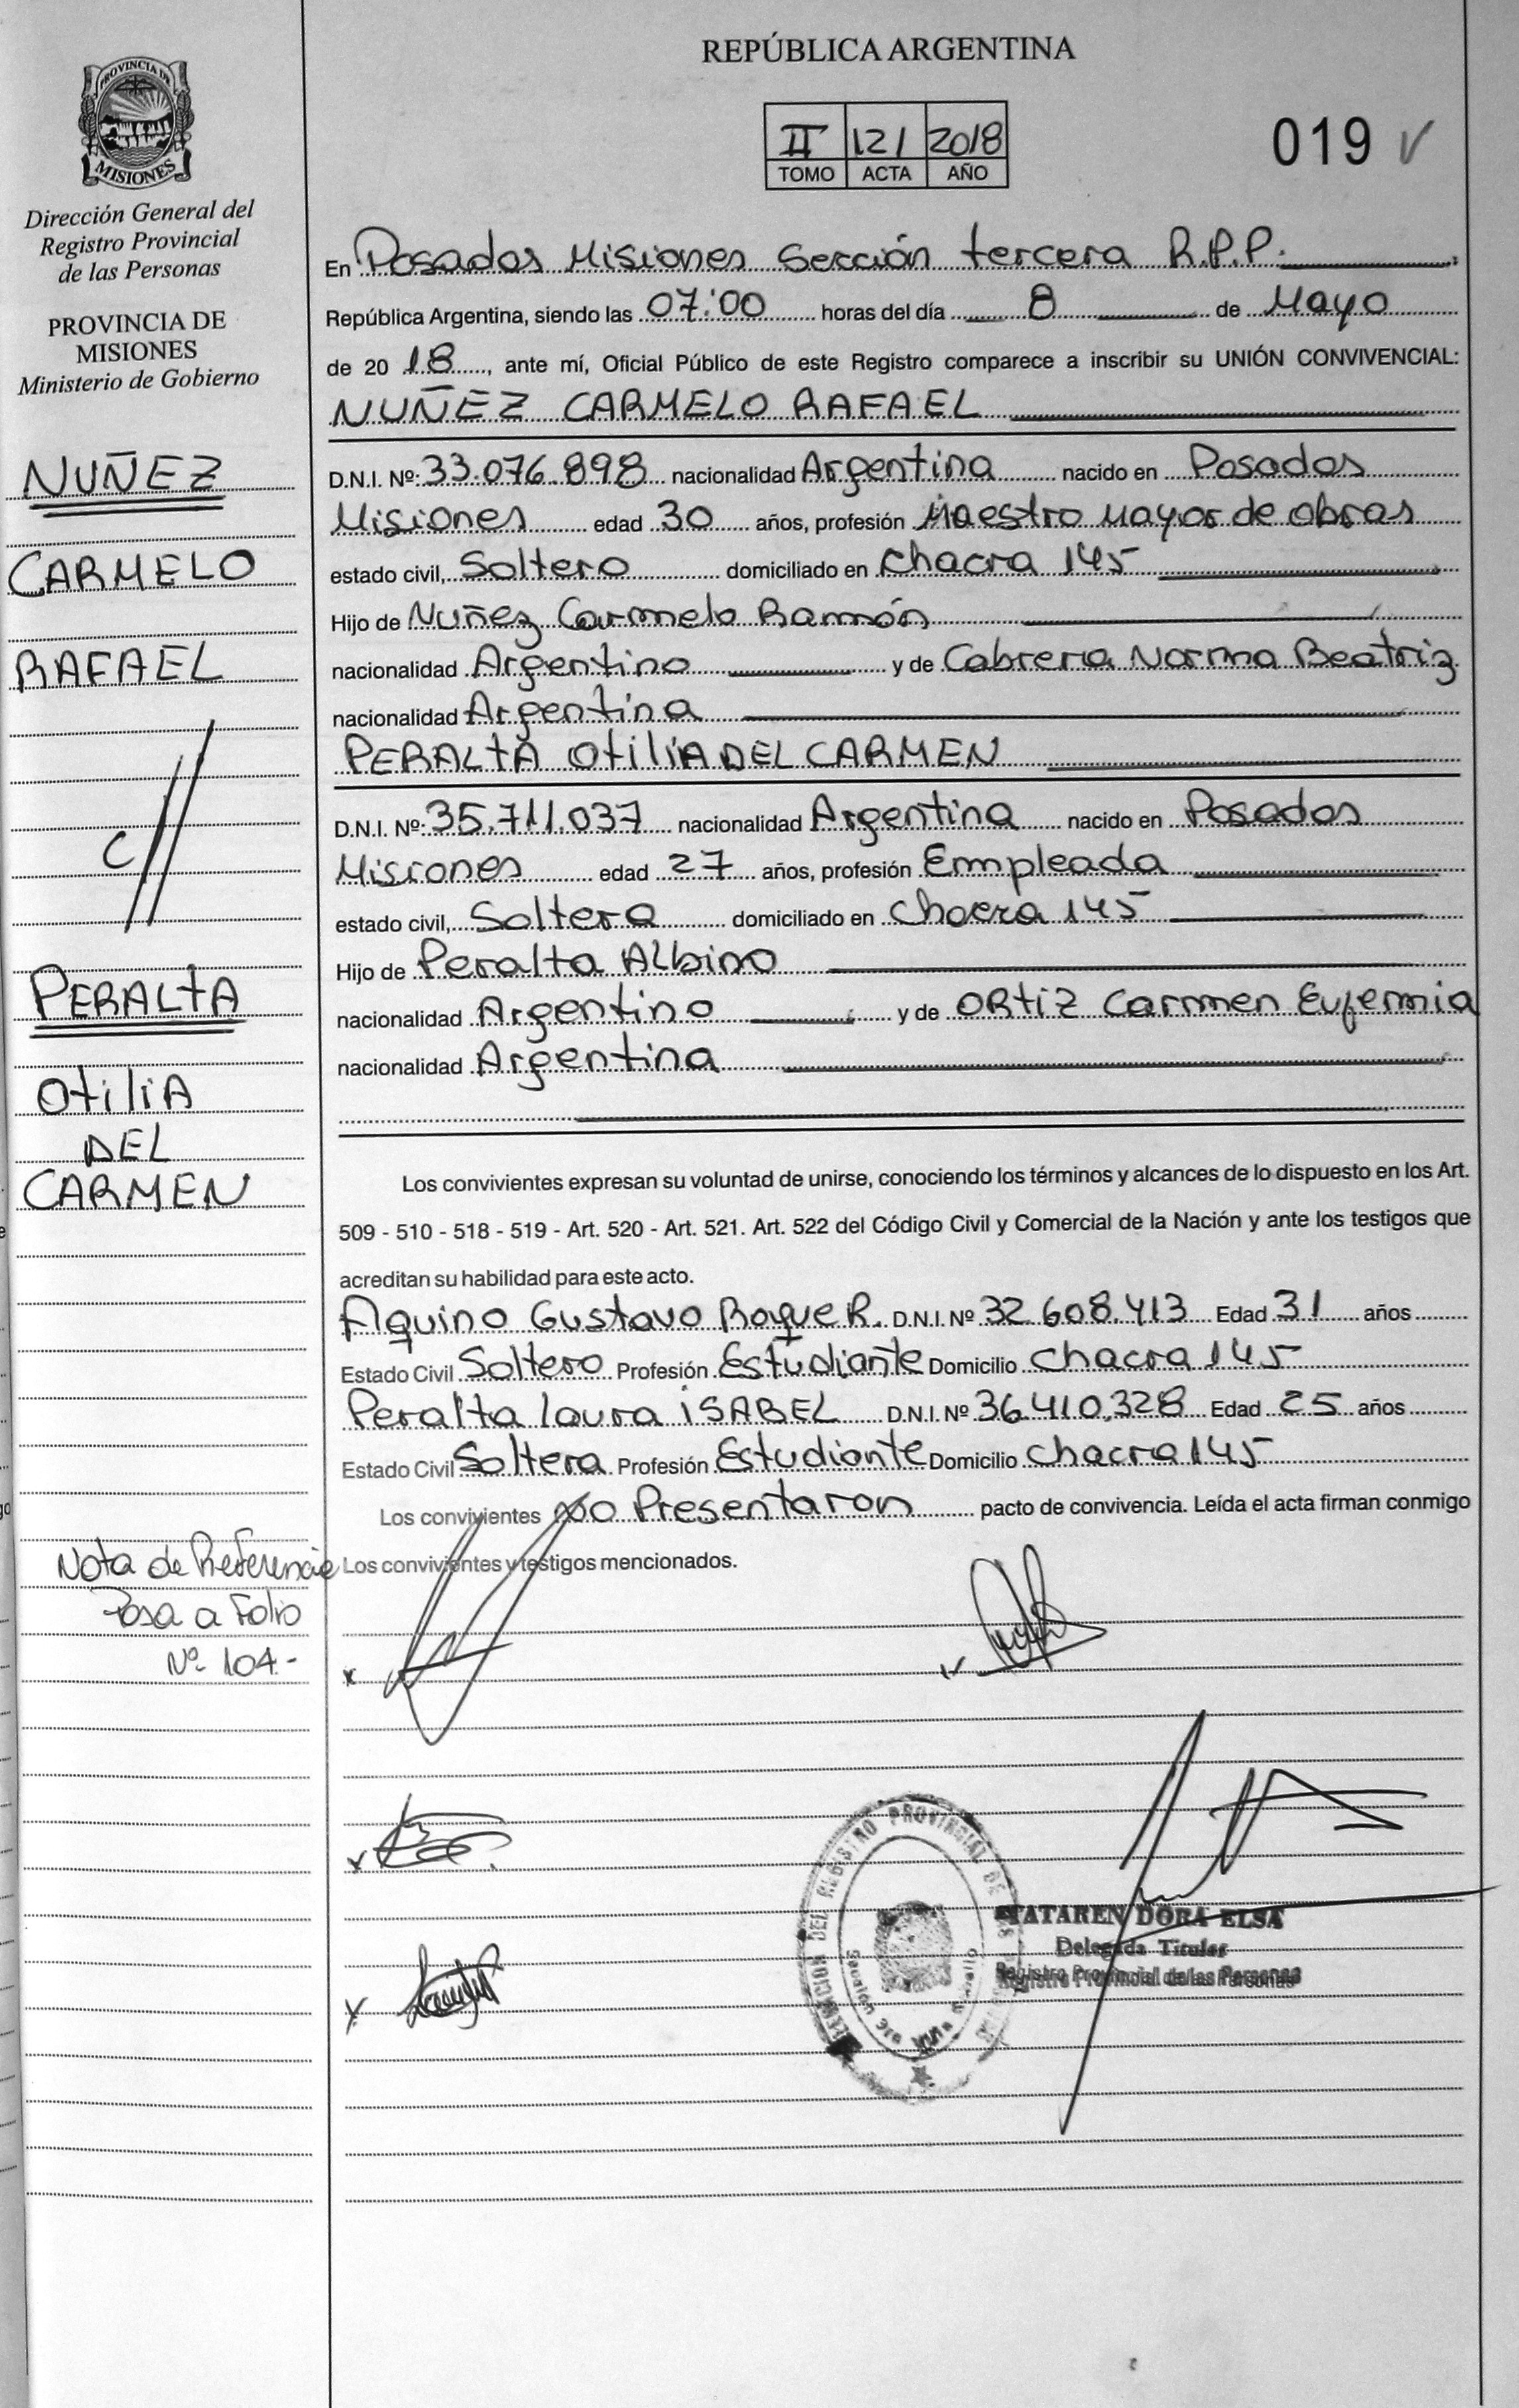 PROVINCIA DE
MISIONES
Dirección General del
Registro Provincial
de las Personas
PROVINCIA DE
MISIONES
Ministerio de Gobierno
NUÑEZ
CARMELO
RAFAEL
c//
PERALTA
OtiliA
DEL
CARMEN
Nota de Referencia
Pasa a Folio
Nº 104.-
REPÚBLICA ARGENTINA
II 121 2018
TOMO ACTA AÑO
019
En Posadas Misiones Sección tercera R.P.P.
República Argentina, siendo las 07:00 horas del día 8 de Mayo
de 20 18, ante mí, Oficial Público de este Registro comparece a inscribir su UNIÓN CONVIVENCIAL:
NUÑEZ CARMELO RAFAEL
D.N.I. Nº: 33.076.898 nacionalidad Argentina nacido en Posadas
Misiones edad 30 años, profesión Maestro Mayor de obras
estado civil, Soltero domiciliado en chacra 145
Hijo de Nuñez Carmelo Ramón
nacionalidad Argentino y de Cabrera Norma Beatriz
nacionalidad Argentina
PERALTA OtiliA DEL CARMEN
D.N.I. Nº: 35.711.037 nacionalidad Argentina nacido en Posadas
Misiones edad 27 años, profesión Empleada
estado civil, Soltera domiciliado en chacra 145
Hijo de Peralta Albino
nacionalidad Argentino y de ORtiz Carmen Eufemia
nacionalidad Argentina
Los convivientes expresan su voluntad de unirse, conociendo los términos y alcances de lo dispuesto en los Art.
509 - 510 - 518 - 519 - Art. 520 - Art. 521. Art. 522 del Código Civil y Comercial de la Nación y ante los testigos que
acreditan su habilidad para este acto.
Aquino Gustavo Roque R. D.N.I. Nº 32.608.413 Edad 31 años
Estado Civil Soltero Profesión Estudiante Domicilio chacra 145
Peralta laura iSABEL D.N.I. Nº 36.410.328 Edad 25 años
Estado Civil Soltera Profesión Estudiante Domicilio chacra 145
Los convivientes no Presentaron pacto de convivencia. Leída el acta firman conmigo
Los convivientes y testigos mencionados.
DEL REGISTRO PROVINCIAL DE
Sección 3ra
TATAREN DORA ELSA
Delegada Titular
Registro Provincial de las Personas